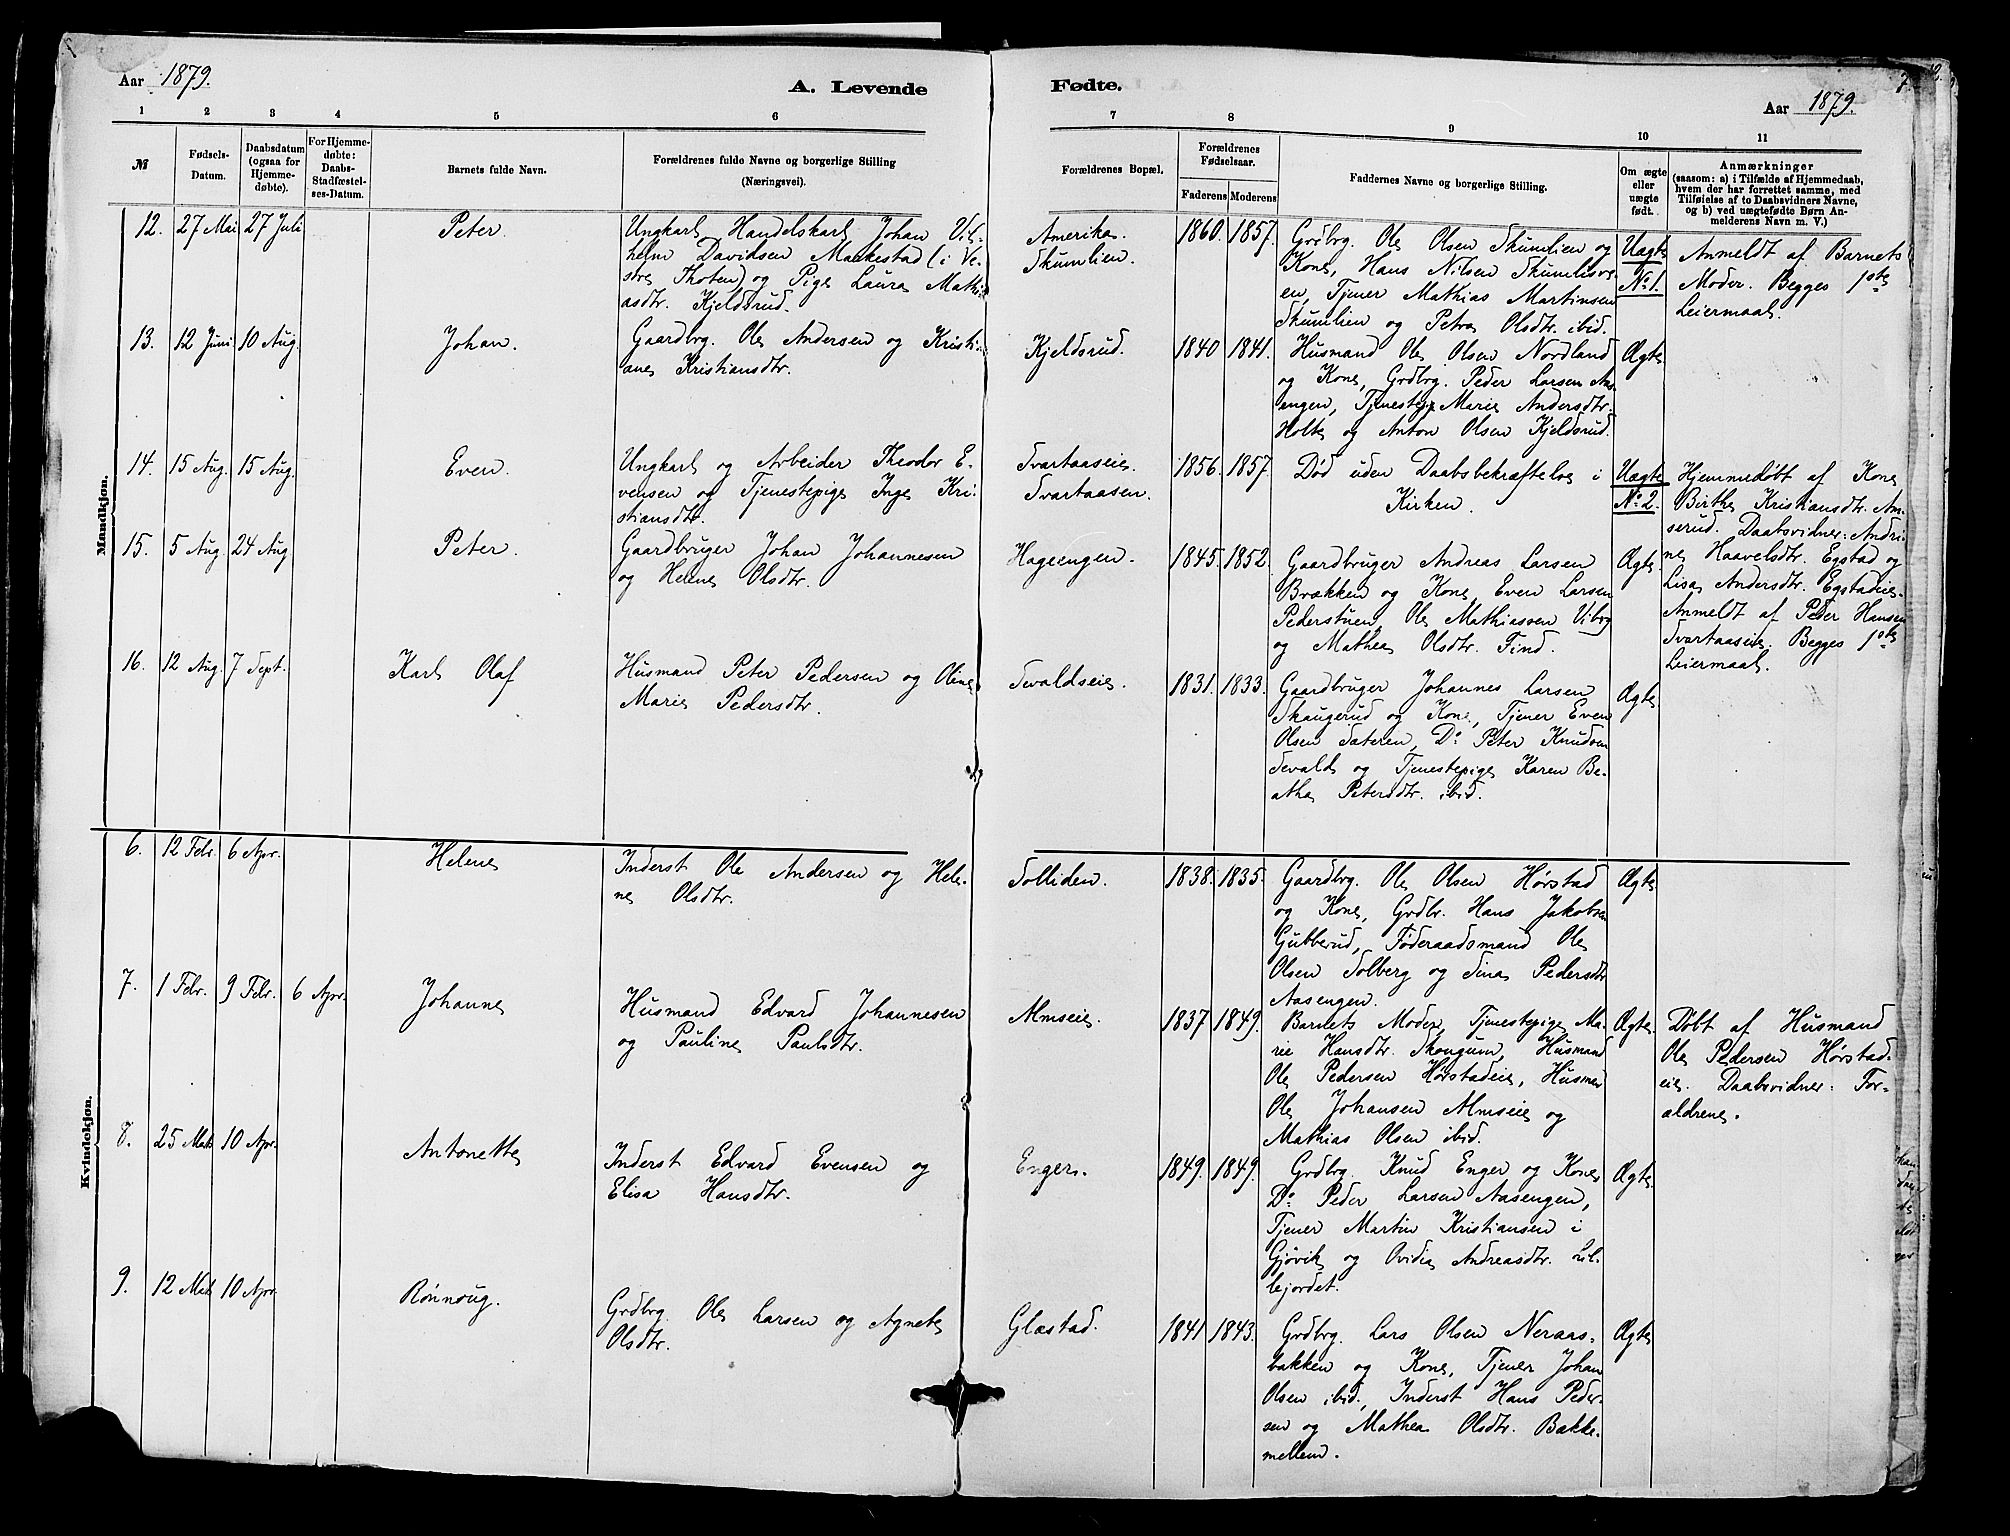 Aar 1879.
A. Levende
Fødte.
Aar 1879.
1 2 3 4 5 6
7 8 9 10 11
№
Fødsels-
Datum.
Daabsdatum
(ogsaa for
Hjemme-
døbte).
For Hjemme-
døbte:
Daabs-
Stadfæstel-
ses-Datum.
Barnets fulde Navn.
Forældrenes fulde Navne og borgerlige Stilling
(Næringsvei).
Forældrenes Bopæl.
Forældrenes
Fødselsaar.
Faderens Moderens
Faddernes Navne og borgerlige Stilling.
Om ægte
eller
uægte
født.
Anmærkninger
(saasom: a) i Tilfælde af Hjemmedaab,
hvem der har forrettet samme, med
Tilføielse af to Daabsvidners Navne,
og b) ved uægtefødte Børn An-
melderens Navn m. V.)
Mandkjøn.
12. 27 Mai 27 Juli
Peter
Ungkarl Handelskarl Johan Vil-
helm Davidsen Markestad (i Ve-
stre Thoten) og Pige Laura Mathi-
asdtr. Kjeldsrud.
Amerika.
Skumlien.
1860. 1857.
Grdbrg. Ole Olsen Skumlien og
Kone, Hans Nilsen Skumlisve-
en, Tjener Mathias Martinsen
Skumlien og Petra Olsdtr. ibid.
Uægte
№ 1.
Anmeldt af Barnets
Moder. Begges 1ste
Leiermaal.
13. 12 Juni 10 Aug.
Johan.
Gaardbrg. Ole Andersen og Kristi-
ane Kristiansdtr.
Kjeldsrud.
1840 1841.
Husmand Ole Olsen Nordland
og Kone, Grdbrg. Peder Larsen Aas-
engen, Tjenestep. Marie Andersdtr.
Holte og Anton Olsen Kjeldsrud.
Ægte
14. 15 Aug. 15 Aug.
Even.
Ungkarl og Arbeider Theodor E-
vensen og Tjenestepige Inge Kri-
stiansdtr.
Svartaaseie.
Svartaasen.
1856. 1857.
Død uden Daabsbekræftelse i
Kirken.
Uægte
№ 2.
Hjemmedøbt af Kone
Birthe Kristiansdtr. Am-
serud. Daabsvidner: Andri-
ne Haavelsdtr. Egstad og
Lisa Andersdtr. Egstadeie.
Anmeldt af Peder Hansen
Svartaaseie. Begges 1ste
Leiermaal.
15. 5 Aug. 24 Aug
Peter.
Gaardbruger Johan Johannesen
og Helene Olsdtr.
Hageengen.
1845. 1852.
Gaardbruger Andreas Larsen
Brækken og Kone, Even Larsen
Pederstuen, Ole Mathiasen Viborg
og Mathea Olsdtr. Find.
Ægte
16. 12 Aug. 7 Sept.
Karl Olaf
Husmand Peter Pedersen og Oline
Marie Pedersdtr.
Sevaldseie.
1831. 1833.
Gaardbruger Johannes Larsen
Skaugerud og Kone, Tjener Even
Olsen Sæteren, Do Peter Knudsen
Sevald og Tjenestepige Karen Be-
athe Petersdtr. ibid.
Ægte
Kvindekjøn.
6. 12 Febr. 6 Apr.
Helene
Inderst Ole Andersen og Hele-
ne Olsdtr.
Solliden.
1838. 1835.
Gaardbrg. Ole Olsen Hørstad
og Kone, Grdbr. Hans Jakobsen
Gubberud, Føderaadsmand Ole
Olsen Solberg og Sina Pedersdtr
Aasengen.
Ægte
7. 1 Febr. 9 Febr. 6 Apr.
Johanne
Husmand Edvard Johannesen
og Pauline Paulsdtr.
Almseie.
1837 1849.
Barnets Moder, Tjenestepige Ma-
rie Hansdtr. Skongum, Husmand
Ole Pedersen Hørstadeie, Husmd
Ole Johansen Almseie og
Mathias Olsen ibid.
Ægte.
Døbt af Husmand
Ole Pedersen Hørstad-
eie. Daabsvidner: For-
ældrene.
8. 25 Mats 10 Apr.
Antonette
Inderst Edvard Evensen og
Elisa Hansdtr.
Enger.
1849. 1849.
Grdbrg. Knud Enger og Kone
Do Peder Larsen Aasengen,
Tjener Martin Kristiansen i
Gjøvik og Ovidia Andreasdtr. Lil-
lejordet.
Ægte.
9. 12 Mats 10 Apr.
Rønnoug.
Grdbrg. Ole Larsen og Agnete
Olsdtr.
Glæstad.
1841 1843.
Grdbrg. Lars Olsen Neraas-
bakken og Kone, Tjener Johan
Olsen ibid., Inderst Hans Peder-
sen og Mathea Olsdtr. Bakke-
mellem.
Ægte